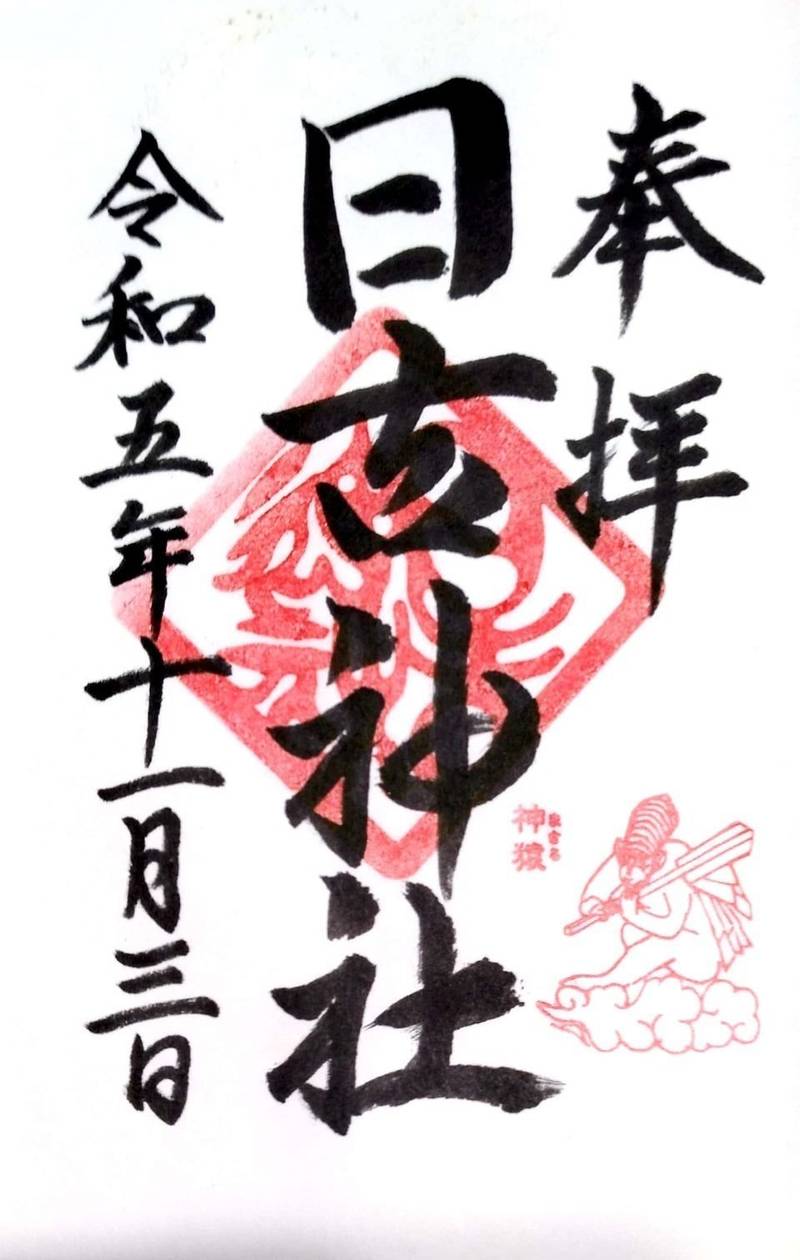 奉拝
日吉神社
令和五年十一月三日
まさる
神猿